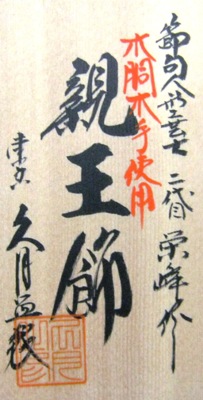 節句人形工芸士 二代目 栄峰作
木胴木手使用
親王飾
東京 久月謹製